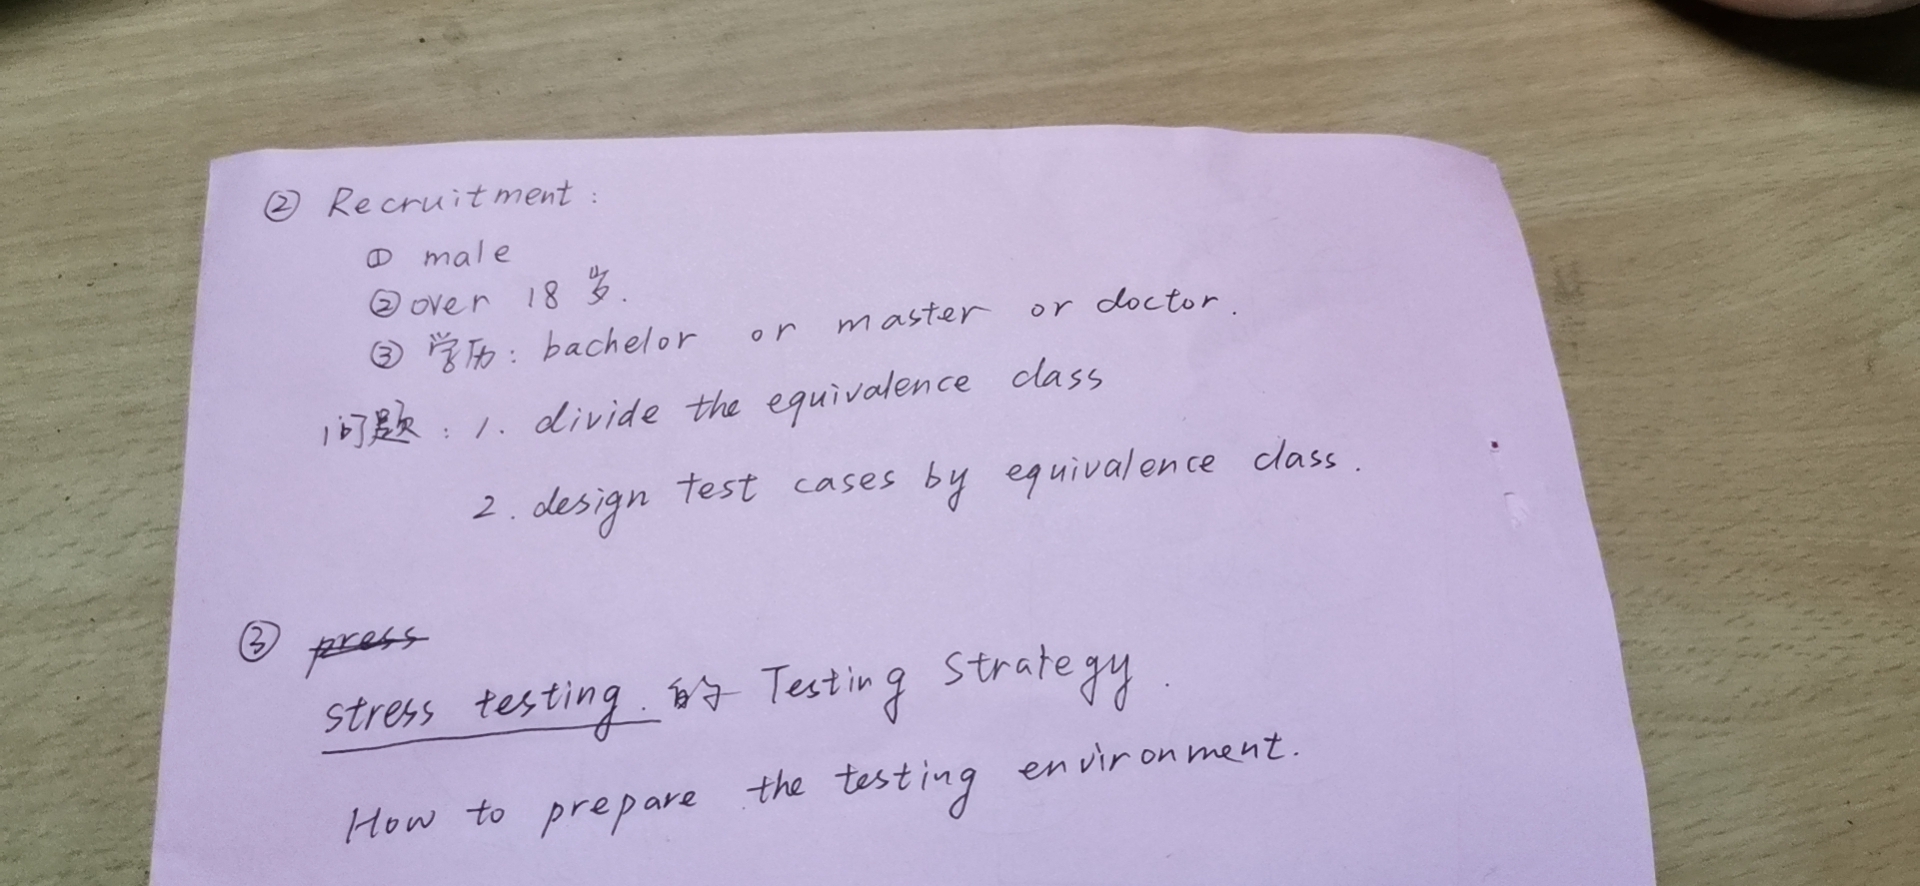 ② Recruitment:
① male
② over 18 岁.
③ 学历: bachelor or master or doctor.
问题: 1. divide the equivalence class
2. design test cases by equivalence class.
③ press
stress testing. 的 Testing Strategy.
How to prepare the testing environment.